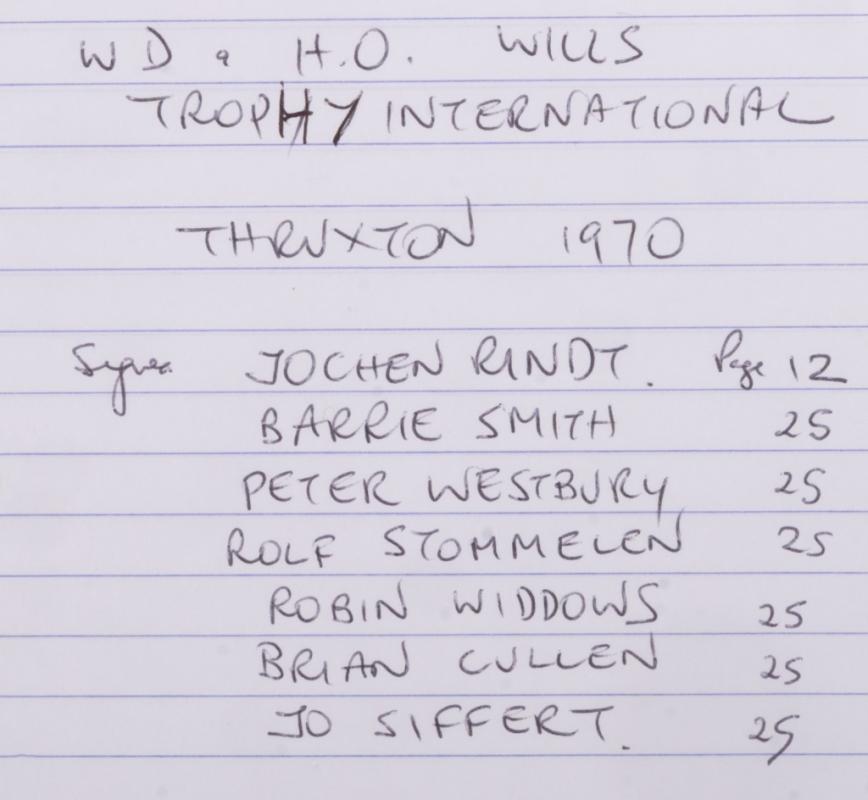 WD & H.O. WILLS
TROPHY INTERNATIONAL
THRUXTON 1970
Signed JOCHEN RINDT. Page 12
BARRIE SMITH 25
PETER WESTBURY 25
ROLF STOMMELEN 25
ROBIN WIDDOWS 25
BRIAN CULLEN 25
JO SIFFERT. 25